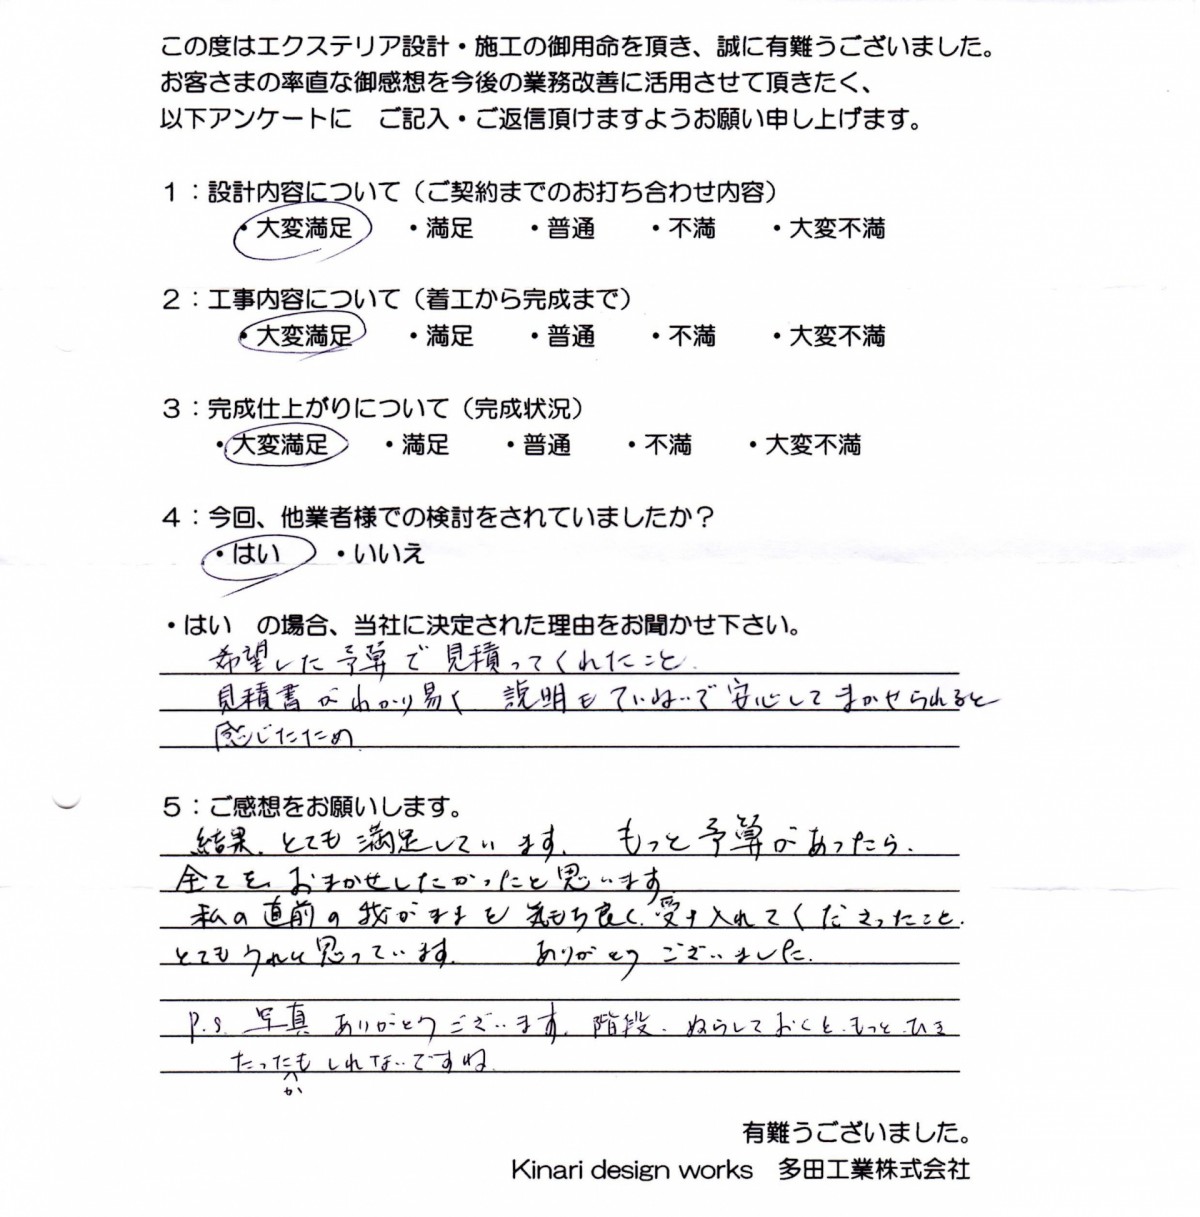 この度はエクステリア設計・施工の御用命を頂き、誠に有難うございました。
お客さまの率直な御感想を今後の業務改善に活用させて頂きたく、
以下アンケートに　ご記入・ご返信頂けますようお願い申し上げます。
１：設計内容について（ご契約までのお打ち合わせ内容）
・大変満足　・満足　・普通　・不満　・大変不満
２：工事内容について（着工から完成まで）
・大変満足　・満足　・普通　・不満　・大変不満
３：完成仕上がりについて（完成状況）
・大変満足　・満足　・普通　・不満　・大変不満
４：今回、他業者様での検討をされていましたか？
・はい　・いいえ
・はい　の場合、当社に決定された理由をお聞かせ下さい。
希望した予算で見積ってくれたこと.
見積書がわかり易く 説明もていねいで安心してまかせられると
感じたため.
５：ご感想をお願いします。
結果、とても満足しています。 もっと予算があったら、
全てを、おまかせしたかったと思います。
私の直前の我がままを 気もち良く、受け入れてくださったこと、
とてもうれしく思っています。 ありがとうございました。
P.S. 写真 ありがとうございます。階段、ぬらしておくと、もっと、ひき
たったかもしれないですね.
有難うございました。
Kinari design works　多田工業株式会社